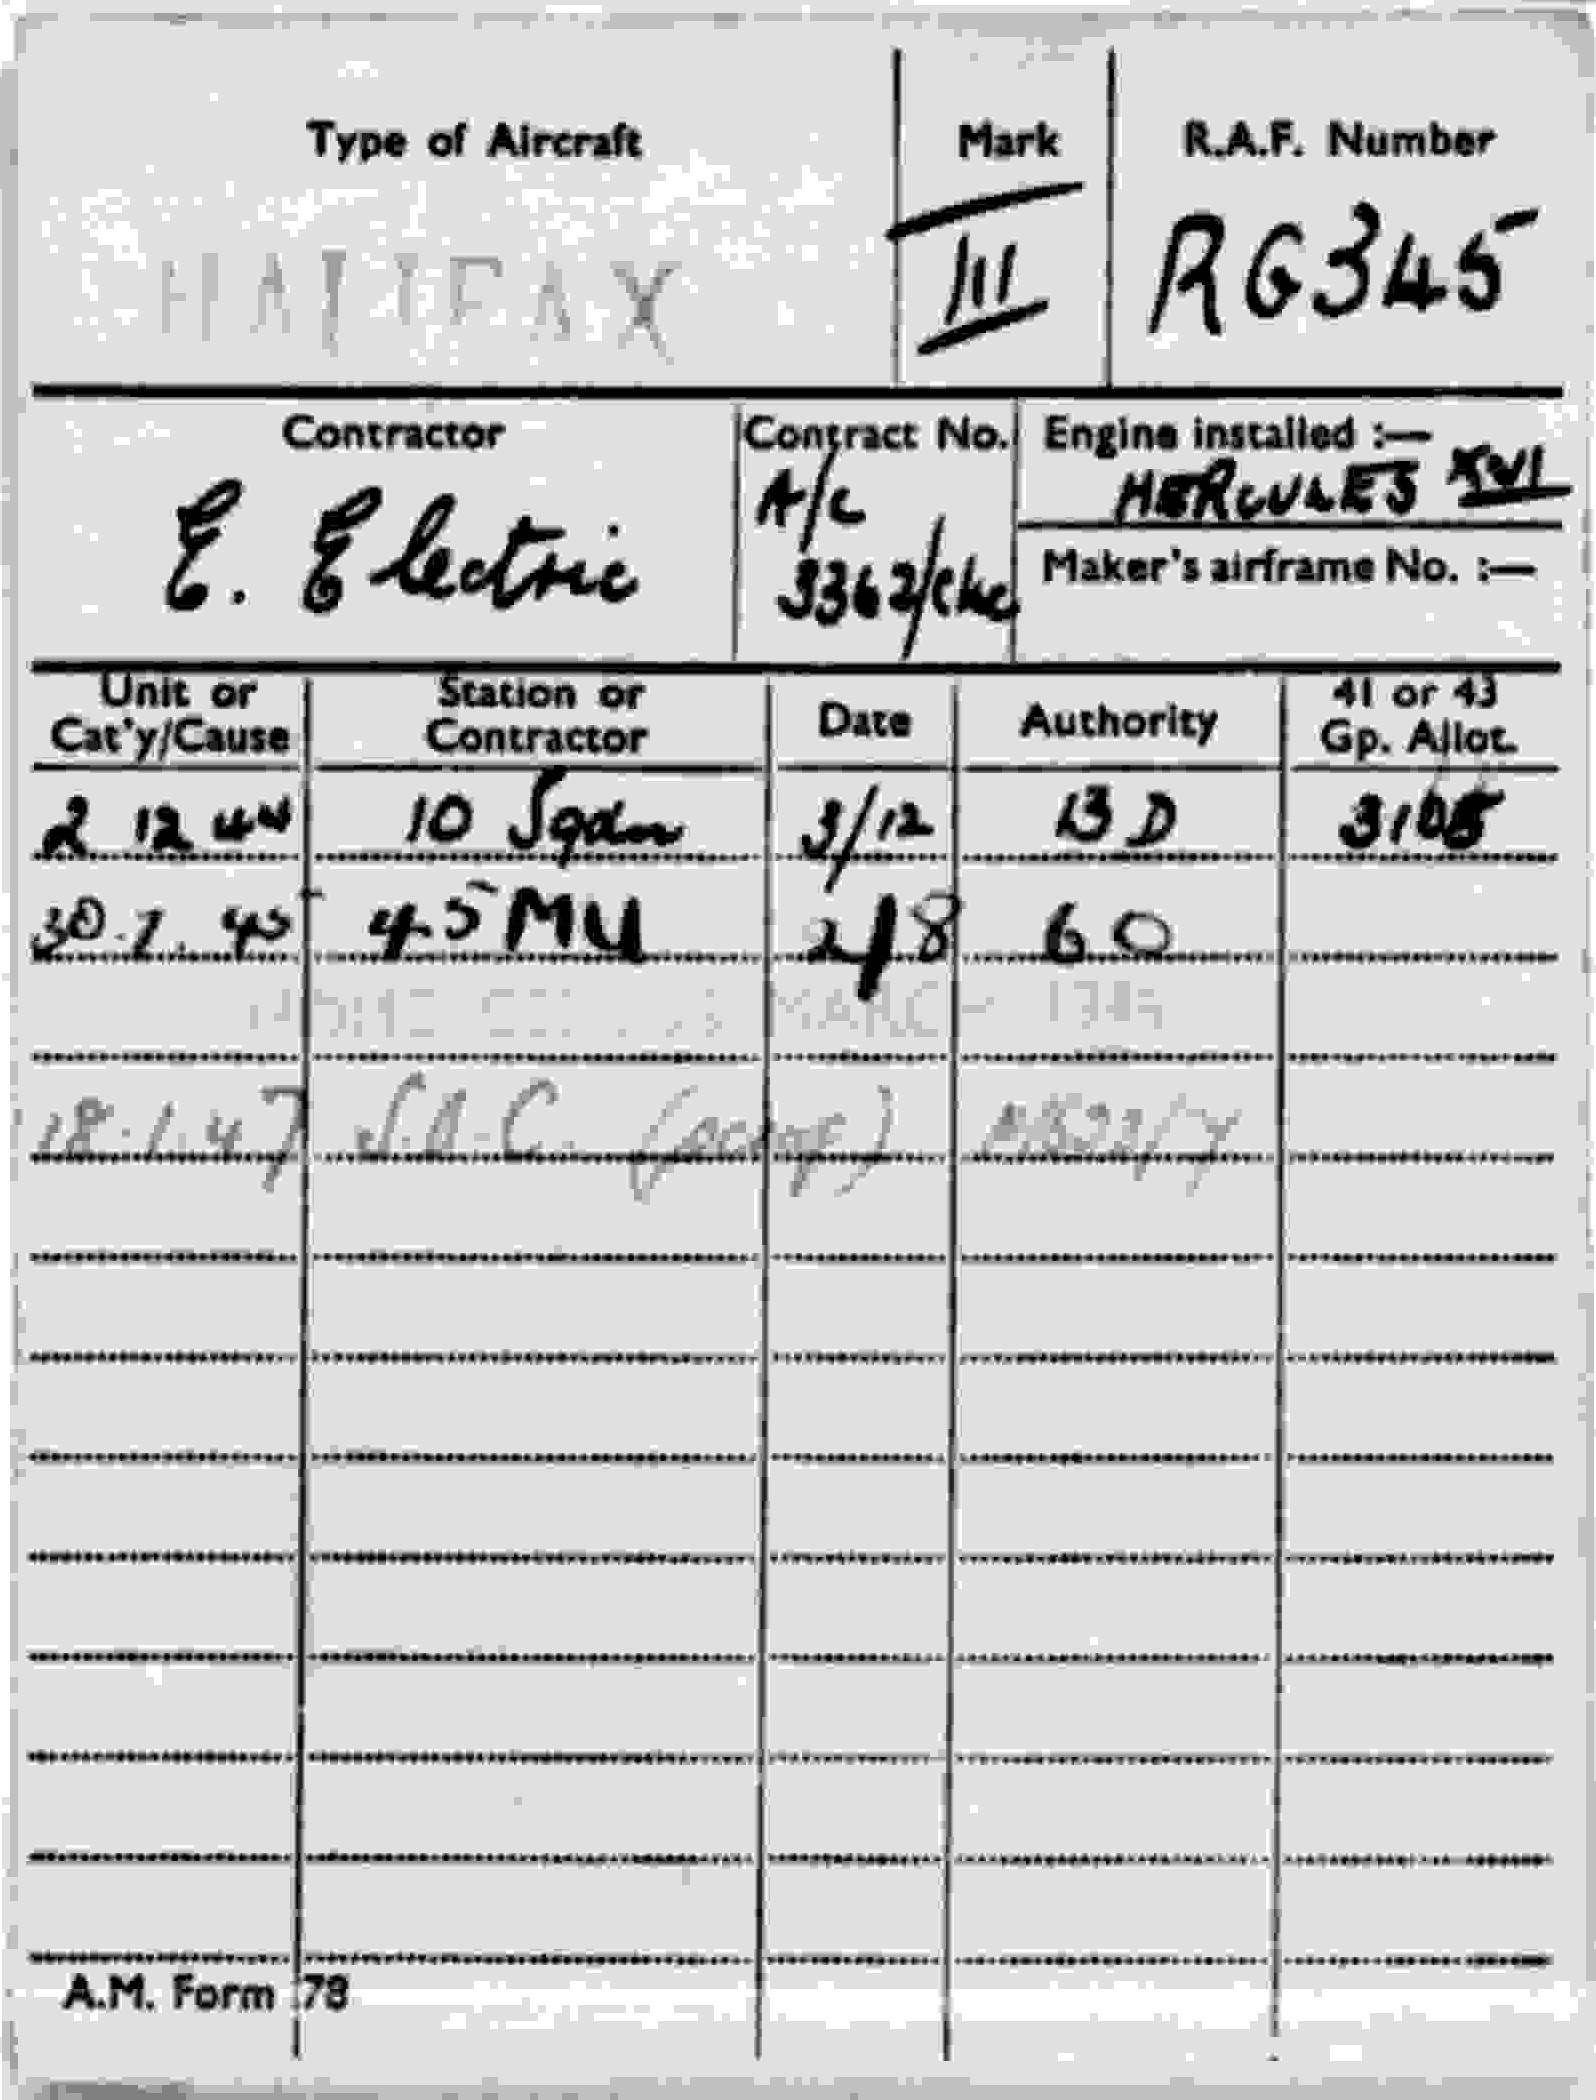 Type of Aircraft Mark R.A.F. Number
HALIFAX III RG345
Contractor Contract No. Engine installed :—
HERCULES XVI
E. Electric A/C
3362/C4c Maker's airframe No. :—
Unit or Cat'y/Cause Station or Contractor Date Authority 41 or 43 Gp. Allot.
2 12 44 10 Sqdn 3/12 13 D 3105
30.7.45 45 MU 2/8 60
MARCH 1946
18.1.47 S.O.C. (scrap)
A.M. Form 78